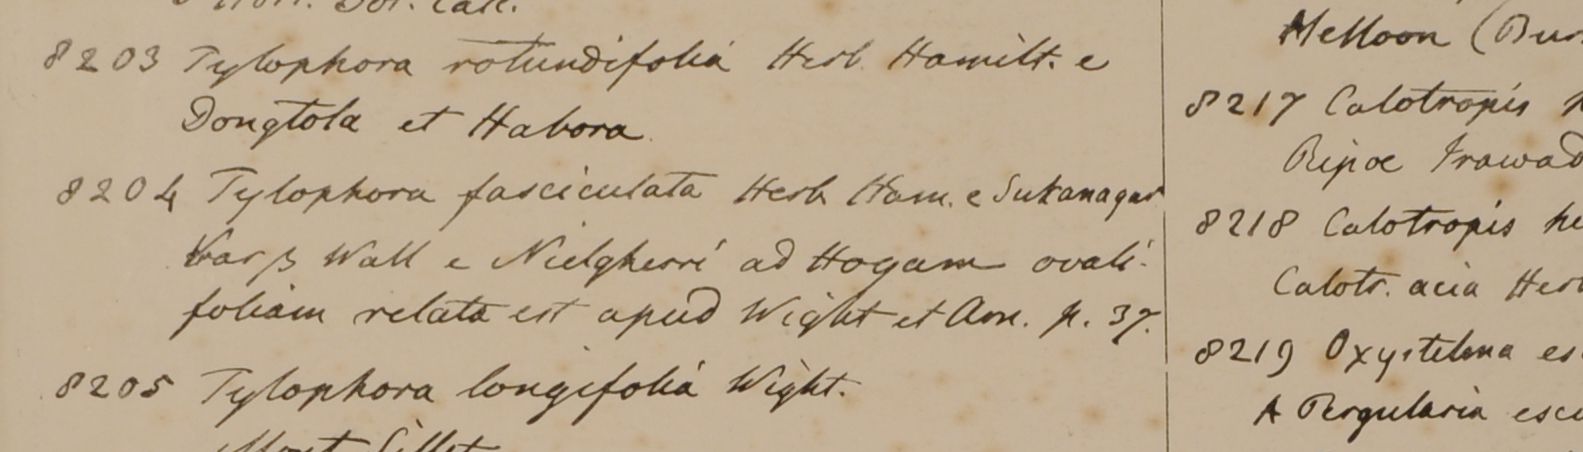 Hort. Bot. Calc.
8203 Tylophora rotundifolia Herb. Hamilt. e
Dongtola et Habora
8204 Tylophora fasciculata Herb Ham. e Sukanagar
Var β Wall e Nielgherri ad Hogam ovali-
foliam relata est apud Wight et Arn. p. 37.
8205 Tylophora longifolia Wight.
Mont Sillet
Melloon (Bur
8217 Calotropis
Ripoe Irawad
8218 Calotropis he
Calotr. acia Herb
8219 Oxystelma es
A Pergularia escu